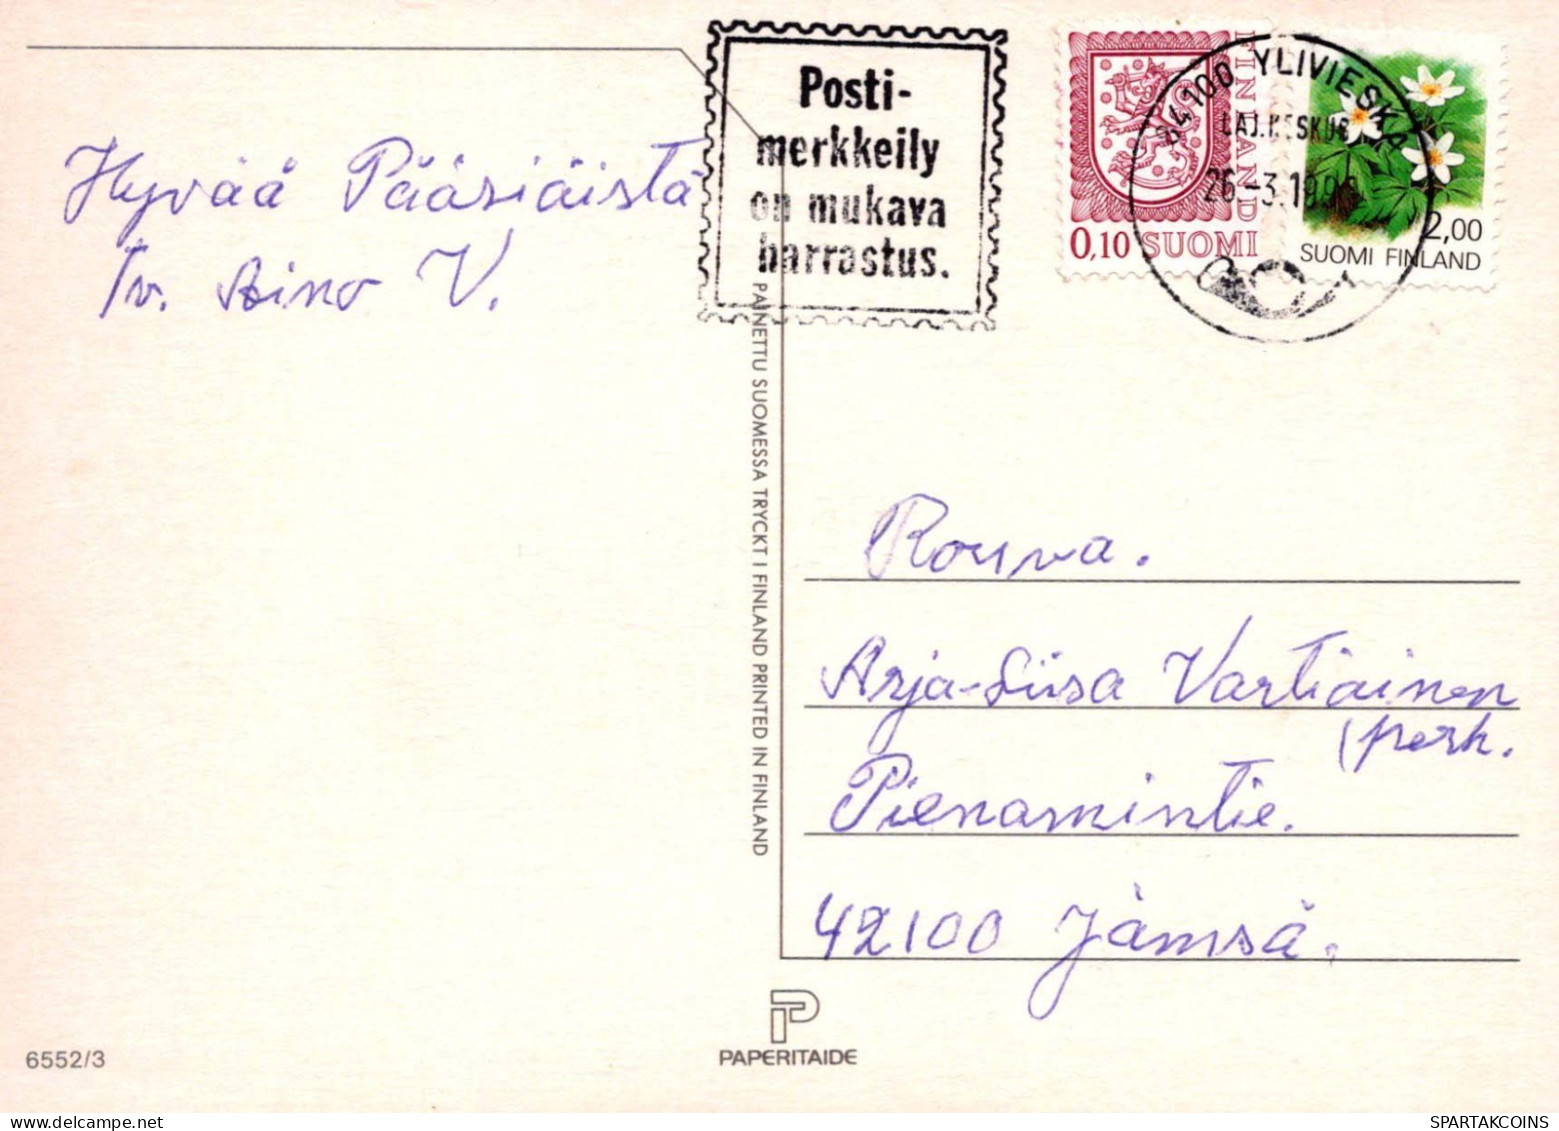 Posti-
merkkeily
on mukava
harrastus.
FINLAND
0,10 SUOMI
84100 YLIVIESKA
LAJ.KESKUS
26-3.1990
2,00
SUOMI FINLAND
Hyvää Pääsiäistä
Tv. Aino V.
PAINETTU SUOMESSA TRYCKT I FINLAND PRINTED IN FINLAND
Rouva.
Arja-Liisa Vartiainen
/perh.
Pienamintie.
42100 Jämsä.
PAPERITAIDE
6552/3
SPARTAKCOINS